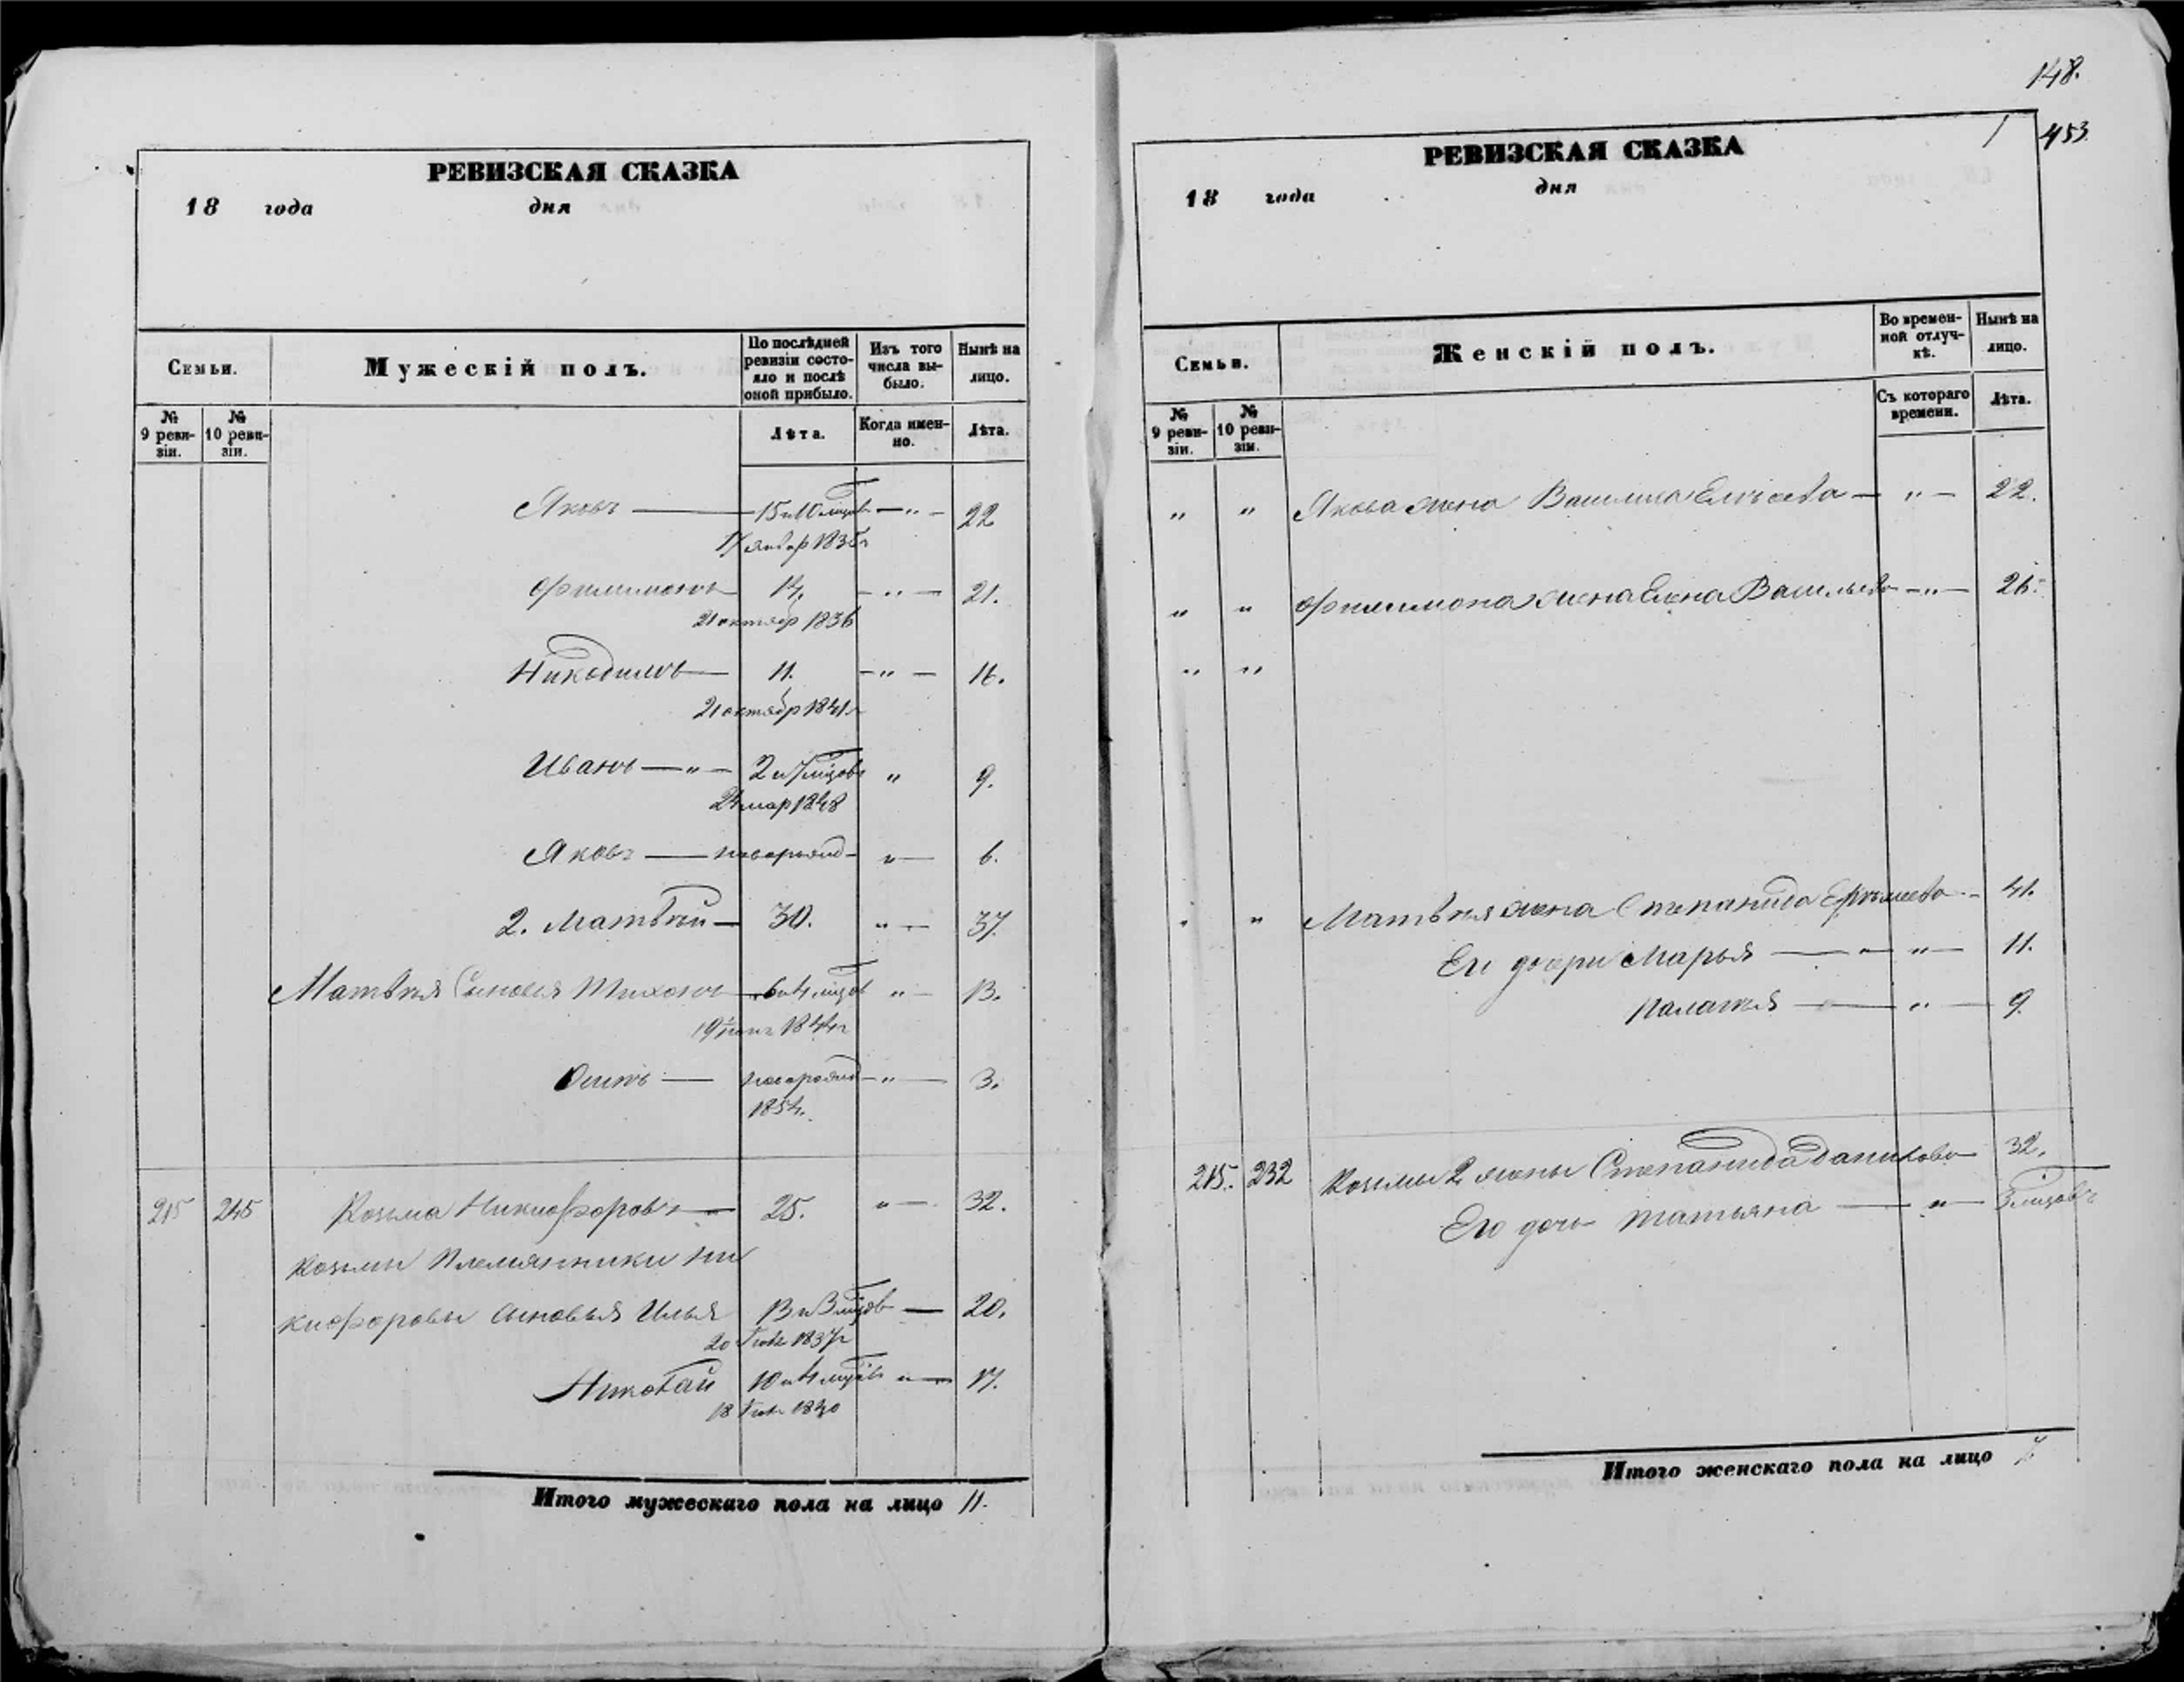 РЕВИЗСКАЯ СКАЗКА
18 года дня
Семьи.
Мужескій полъ.
По послѣдней ревизіи состояло и послѣ оной прибыло.
Изъ того числа выбыло.
Нынѣ на лицо.
№ 9 ревизіи.
№ 10 ревизіи.
Лѣта.
Когда именно.
Лѣта.
Яковъ — 15 и 10 — „ — 22
17 январ 1835
Филимонъ — 14. — „ — 21.
21 октябр 1836
Никодимъ — 11. — „ — 16.
21 октябр 1841
Иванъ — „ — 2 и 7 „ 9.
24 мар 1848
Яковъ — новорожд — „ — 6.
2. Матвѣй — 30. „ — 37.
Матвѣя Сыновья Тихонъ — 6 и 4 „ — 13.
19 1844
Осипъ — новорожд — „ — 3.
1854.
215 245 Козьма Никифоровъ — 25. „ — 32.
Козьмы Племянники Ни
кифоровы сыновья Илья 13 и 3 — 20.
20 1837
Николай 10 и 4 „ — 17.
18 1840
Итого мужескаго пола на лицо 11.
148.
453
РЕВИЗСКАЯ СКАЗКА
18 года дня
Семьи.
Женскій полъ.
Во временной отлучкѣ.
Нынѣ на лицо.
№ 9 ревизіи.
№ 10 ревизіи.
Съ котораго времени.
Лѣта.
„ „ Якова жена Василиса Елисеева — „ — 22.
„ „ Филимона жена Елена Васильева — „ — 26.
„ „
„ „ Матвѣя жена Степанида — 41.
Его дочери Марья — „ — „ — 11.
Палагея — „ — 9.
215. 232 Козьмы 2 жены Степанида Данилова 32.
Его дочь Татьяна — „ — 3
Итого женскаго пола на лицо 7